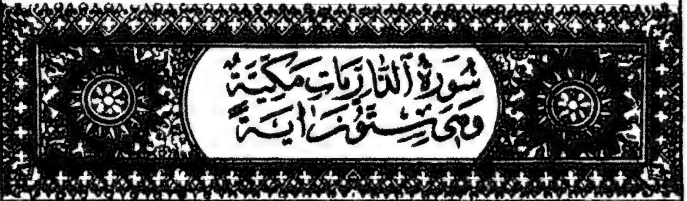 سُورَةُ ٱلذَّارِيَاتِ مَكِّيَّةٌ
وَهِيَ سِتُّونَ اٰيَةً